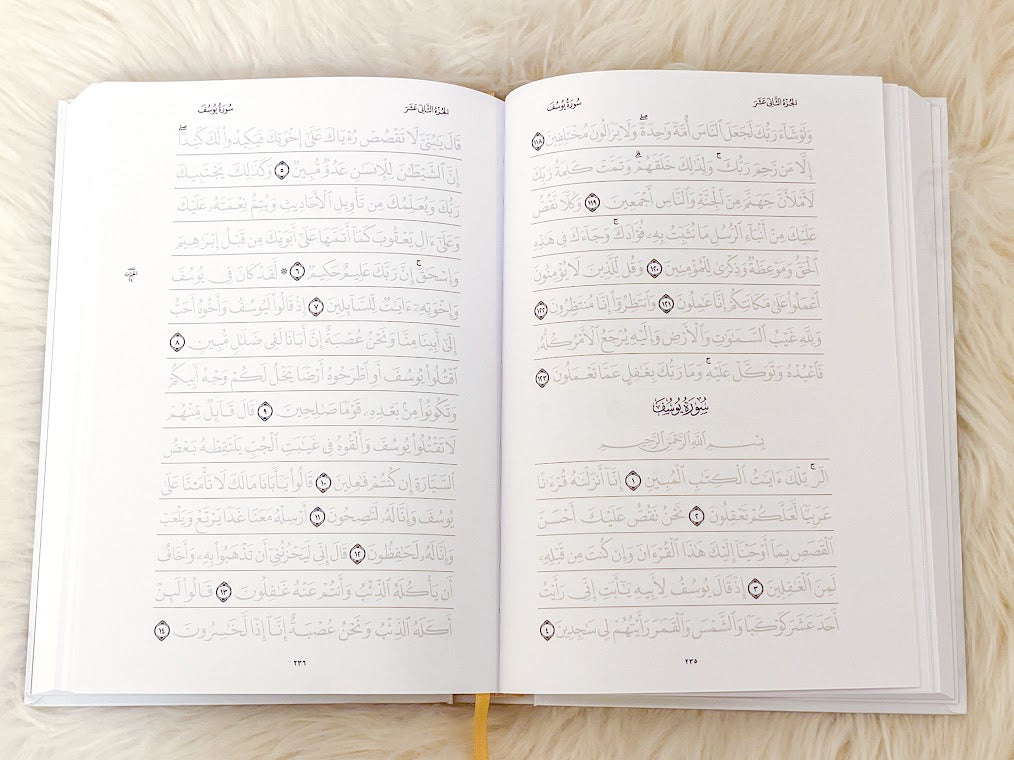 الجزء الثاني عشر
سورة يوسف
ولو شاء ربك لجعل الناس أمة واحدة ولا يزالون مختلفين ١١٨
إلا من رحم ربك ولذلك خلقهم وتمت كلمة ربك
لأملأن جهنم من الجنة والناس أجمعين ١١٩ وكلا نقص
عليك من أنباء الرسل ما نثبت به فؤادك وجاءك في هذه
الحق وموعظة وذكرى للمؤمنين ١٢٠ وقل للذين لا يؤمنون
اعملوا على مكانتكم إنا عاملون ١٢١ وانتظروا إنا منتظرون ١٢٢
ولله غيب السموات والأرض وإليه يرجع الأمر كله
فاعبده وتوكل عليه وما ربك بغافل عما تعملون ١٢٣
سورة يوسف
بسم الله الرحمن الرحيم
الر تلك ءايت الكتب المبين ١ إنا أنزلنه قرءنا
عربيا لعلكم تعقلون ٢ نحن نقص عليك أحسن
القصص بما أوحينا إليك هذا القرءان وإن كنت من قبله
لمن الغفلين ٣ إذ قال يوسف لأبيه يأبت إني رأيت
أحد عشر كوكبا والشمس والقمر رأيتهم لي سجدين ٤
٢٣٥
الجزء الثاني عشر
سورة يوسف
قال يبني لا تقصص رءياك على إخوتك فيكيدوا لك كيدا
إن الشيطن للإنسن عدو مبين ٥ وكذلك يجتبيك
ربك ويعلمك من تأويل الأحاديث ويتم نعمته عليك
وعلى ءال يعقوب كما أتمها على أبويك من قبل إبرهيم
وإسحق إن ربك عليم حكيم ٦ ۞ لقد كان في يوسف
وإخوته ءايت للسائلين ٧ إذ قالوا ليوسف وأخوه أحب
إلى أبينا منا ونحن عصبة إن أبانا لفي ضلل مبين ٨
اقتلوا يوسف أو اطرحوه أرضا يخل لكم وجه أبيكم
وتكونوا من بعده قوما صلحين ٩ قال قائل منهم
لا تقتلوا يوسف وألقوه في غيبت الجب يلتقطه بعض
السيارة إن كنتم فعلين ١٠ قالوا يأبانا ما لك لا تأمنا على
يوسف وإنا له لنصحون ١١ أرسله معنا غدا يرتع ويلعب
وإنا له لحفظون ١٢ قال إني ليحزنني أن تذهبوا به وأخاف
أن يأكله الذئب وأنتم عنه غفلون ١٣ قالوا لئن
أكله الذئب ونحن عصبة إنا إذا لخسرون ١٤
٢٣٦